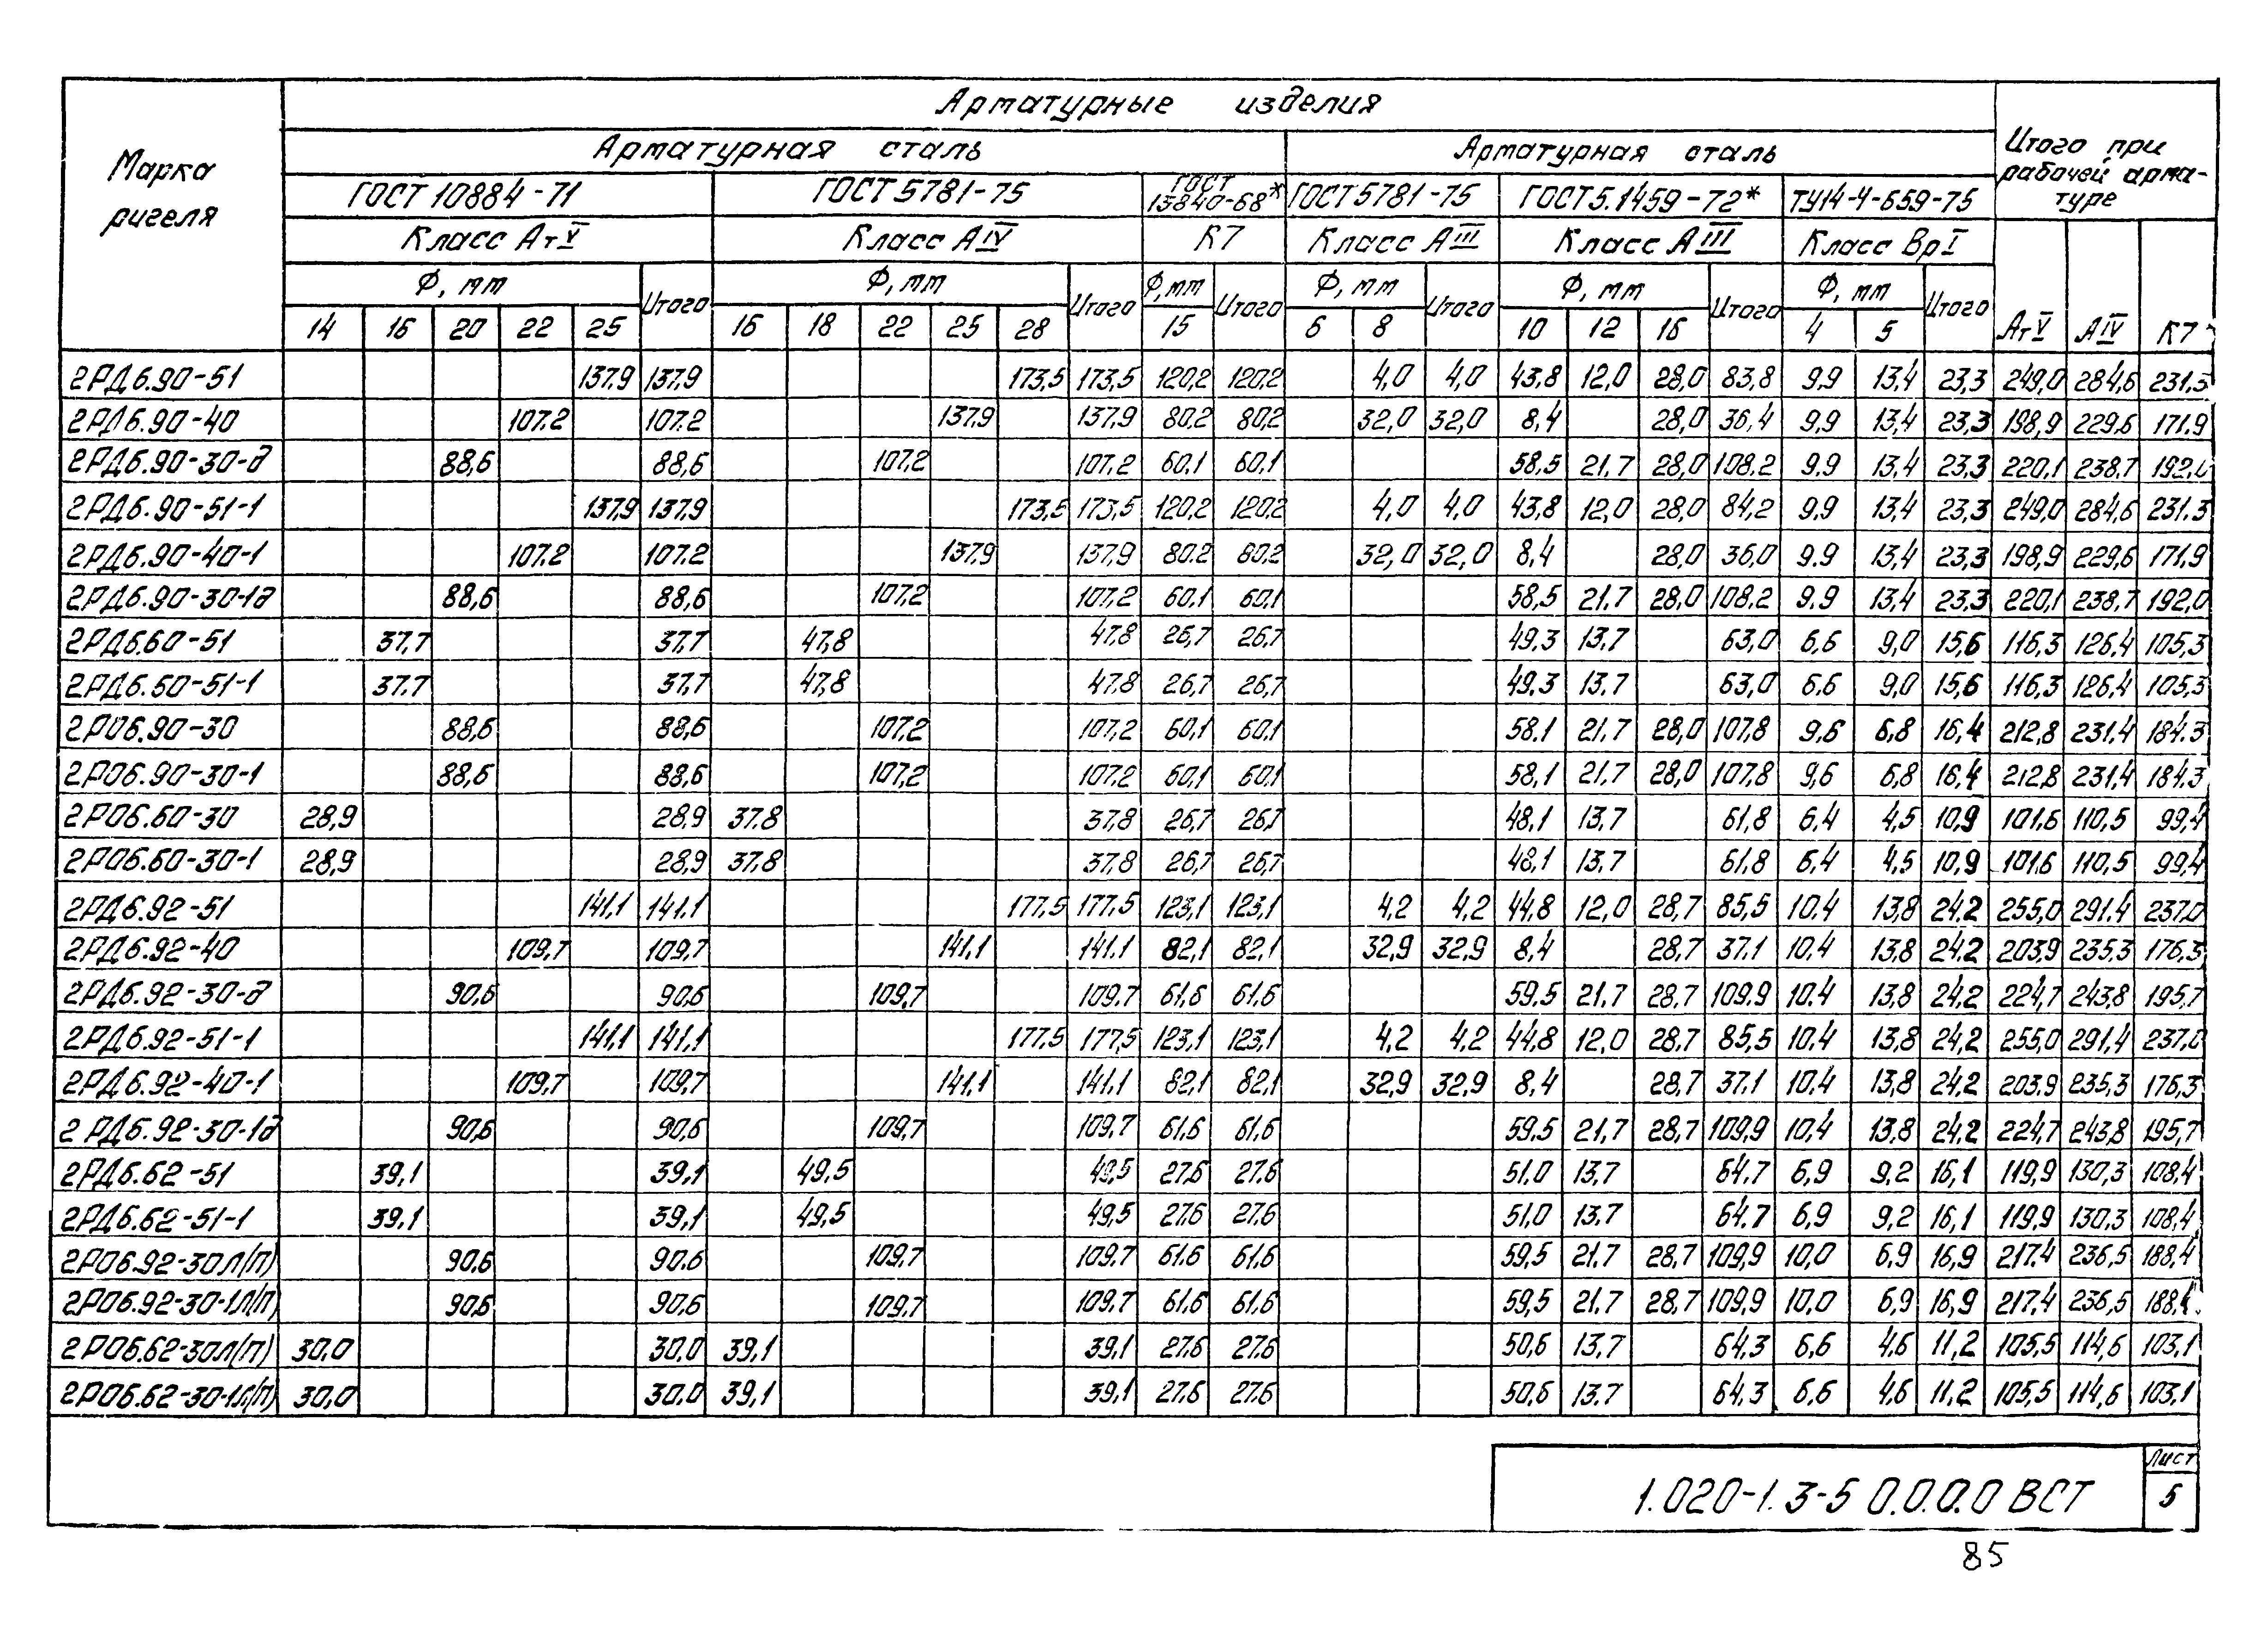 Марка ригеля
Арматурные изделия
Итого при рабочей арматуре
Арматурная сталь
Арматурная сталь
ГОСТ 10884-71
ГОСТ 5781-75
ГОСТ 13840-68*
ГОСТ 5781-75
ГОСТ 5.1459-72*
ТУ14-4-659-75
Класс АтV
Класс АIV
К7
Класс АIII
Класс АIII
Класс ВрI
Ф, мм Итого Ф, мм Итого Ф,мм Итого Ф, мм Итого Ф, мм Итого Ф, мм Итого
14 16 20 22 25 16 18 22 25 28 15 6 8 10 12 16 4 5 АтV АIV К7
2РД6.90-51 137.9 137.9 173,5 173,5 120,2 120,2 4,0 4,0 43,8 12,0 28,0 83,8 9.9 13,4 23,3 249,0 284,6 231.5
2РД6.90-40 107.2 107.2 137,9 137,9 80.2 80,2 32,0 32,0 8,4 28,0 36,4 9,9 13,4 23,3 198,9 229,6 171.9
2РД6.90-30-д 88,6 88,6 107.2 107.2 60.1 60,1 58.5 21.7 28,0 108.2 9.9 13,4 23.3 220,1 238,7 192,0
2РД6.90-51-1 137,9 137.9 173,5 173,5 120,2 120,2 4,0 4,0 43,8 12,0 28,0 84,2 9.9 13,4 23,3 249,0 284,6 231.3
2РД6.90-40-1 107.2 107.2 137.9 137,9 80.2 80.2 32,0 32,0 8,4 28,0 36,0 9.9 13,4 23,3 198,9 229,6 171,9
2РД6.90-30-1д 88,6 88,6 107,2 107,2 60.1 60,1 58,5 21.7 28,0 108,2 9.9 13,4 23,3 220,1 238,7 192,0
2РД6.60-51 37,7 37,7 47,8 47,8 26,7 26,7 49,3 13,7 63,0 6,6 9,0 15,6 116,3 126,4 105,3
2РД6.60-51-1 37,7 37,7 47,8 47,8 26,7 26,7 49,3 13,7 63,0 6.6 9,0 15,6 116,3 126,4 105,3
2РО6.90-30 88,6 88,6 107,2 107,2 60,1 60,1 58.1 21,7 28,0 107,8 9,6 6,8 16,4 212,8 231,4 184.3
2РО6.90-30-1 88,6 88,6 107,2 107,2 60,1 60,1 58,1 21,7 28,0 107,8 9,6 6,8 16,4 212,8 231,4 184,3
2РО6.60-30 28,9 28,9 37.8 37,8 26,7 26,7 48,1 13,7 61,8 6,4 4,5 10,9 101,6 110,5 99,4
2РО6.60-30-1 28,9 28,9 37,8 37,8 26,7 26,7 48,1 13,7 61,8 6,4 4,5 10,9 101,6 110,5 99,4
2РД6.92-51 141,1 141,1 177,5 177,5 123,1 123,1 4,2 4,2 44,8 12,0 28,7 85,5 10.4 13,8 24,2 255,0 291.4 237,0
2РД6.92-40 109,7 109,7 141,1 141.1 82,1 82,1 32,9 32,9 8,4 28,7 37.1 10,4 13,8 24,2 203,9 235,3 176,3
2РД6.92-30-д 90.6 90.6 109,7 109.7 61.6 61.6 59.5 21.7 28,7 109.9 10.4 13,8 24,2 224,7 243,8 195,7
2РД6.92-51-1 141,1 141,1 177,5 177,5 123,1 123,1 4,2 4,2 44,8 12,0 28,7 85,5 10,4 13,8 24,2 255,0 291,4 237,0
2РД6.92-40-1 109,7 109,7 141,1 141,1 82,1 82,1 32,9 32,9 8,4 28,7 37,1 10,4 13,8 24,2 203.9 235,3 176,3
2РД6.92-30-1д 90,6 90,6 109,7 109,7 61.6 61,6 59,5 21,7 28,7 109,9 10,4 13,8 24,2 224,7 243,8 195,7
2РД6.62-51 39,1 39,1 49,5 49,5 27,6 27,6 51,0 13,7 64,7 6,9 9,2 16,1 119,9 130,3 108,4
2РД6.62-51-1 39,1 39,1 49,5 49,5 27,6 27,6 51,0 13,7 64,7 6,9 9,2 16,1 119,9 130,3 108,4
2РО6.92-30Л(П) 90,6 90,6 109,7 109,7 61,6 61,6 59,5 21,7 28,7 109,9 10,0 6,9 16,9 217,4 236,5 188,4
2РО6.92-30-1Л(П) 90,6 90,6 109,7 109,7 61,6 61,6 59,5 21,7 28,7 109,9 10,0 6,9 16,9 217,4 236,5 188,4
2РО6.62-30Л(П) 30,0 30,0 39,1 39,1 27,6 27,6 50,6 13,7 64,3 6,6 4,6 11,2 105,5 114,6 103,1
2РО6.62-30-1Л(П) 30,0 30.0 39,1 39,1 27,6 27,6 50,6 13,7 64,3 6,6 4,6 11,2 105,5 114,6 103,1
1.020-1.3-5 0.0.0.0 ВСТ
Лист
5
85